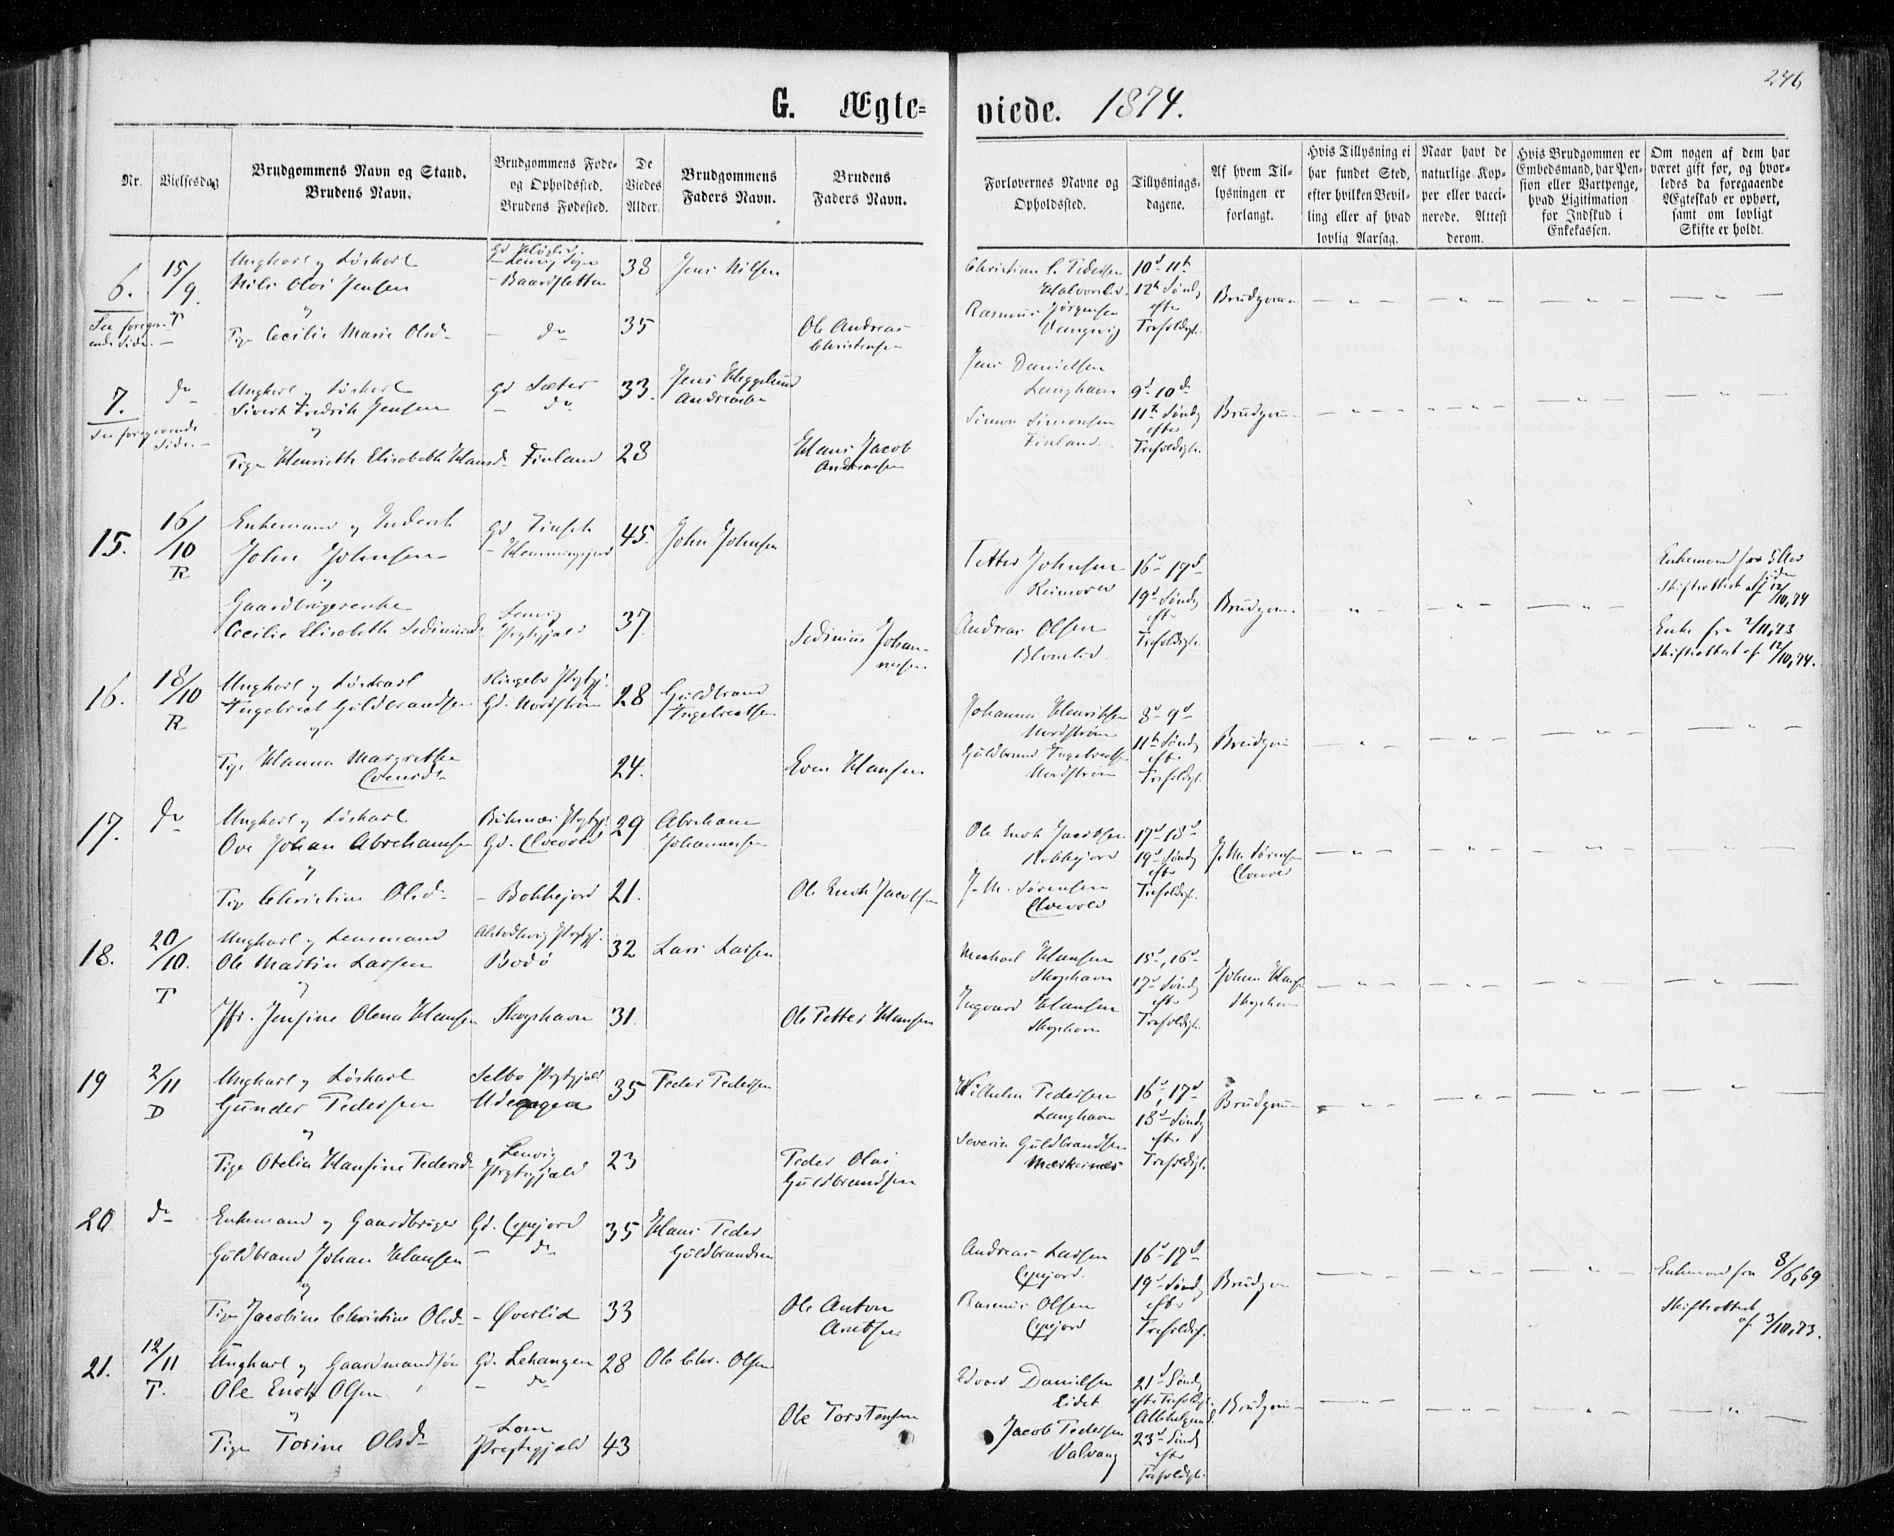 246
G. Ægte=
viede. 1874.
Nr.
Vielsesdag
Brudgommens Navn og Stand.
Brudens Navn.
Brudgommens Føde=
og Opholdssted.
Brudens Fødested.
De
Viedes
Alder.
Brudgommens
Faders Navn.
Brudens
Faders Navn.
Forlovernes Navne og
Opholdssted.
Tillysnings=
dagene.
Af hvem Til=
lysningen er
forlangt.
Hvis Tillysning ei
har fundet Sted,
efter hvilken Bevil=
ling eller af hvad
lovlig Aarsag.
Naar havt de
naturlige Kop=
per eller vacci=
nerede. Attest
derom.
Hvis Brudgommen er
Embedsmand, var Pen=
sion eller Vartpenge,
hvad Ligitimation
for Indskud i
Enkekassen.
Om nogen af dem har
været gift før, og hvor=
ledes da foregaaende
Ægteskab er ophørt,
samt om lovligt
Skifte er holdt.
6.
15/9
T
Ungkarl og Løskarl
Nils Olai Jensen
og
Pige Cecilie Marie Olsd.
Baardsletten
do
38
35
Jens Nilsen
Ole Andreas
Christensen
Christian C. Pedersen
Rasmus Jørgensen
Vangsvig
10d 11te
12te Søndg
efter
Trefoldigh.
Brudgom
7.
do
Ungkarl og Løskarl
Sivert Fredrik Jensen
og
Pige Henriette Elisabeth Hansd.
Gd. Sæter
do
Finland
33.
28
Jens Heggelund
Andreasen
Hans Jacob
Andreasen
Jens Danielsen
Langhavn
Simon Simonsen
Finland
9d 10de
11te Søndg
efter
Trefoldigh.
Brudgom
15.
16/10
R
Enkemand og Inderst
John Johnsen
og
Gaardbrugerenke
Cecilie Elisabeth
Lenvig
Prgtgjæld
45.
37.
John Johnsen
Sedinius Johan=
nesen
Petter Johnsen
Reinvold
Andreas Olsen
Blomlid
16d 17d
19d Søndg
eft
Trefoldigh.
Brudgom
Enkemand
Skifteattest af 12/10,74
Enke fra 2/11,73
Skifteattest af 12/10,74.
16.
18/10
R
Ungkarl og Løskarl
Ingebrict Guldbrandsen
og
Pige Hanna Margrethe
Evensdt
Ringebo Prgtgj.
Gd. Nordstrøm
28
24.
Guldbrand
Ingebrectsen
Even Hansen
Johannes Henriksen
Nordstrøm
Guldbrand Ingebrectsen
Nordstrøm
8d 9d
11te Søndg
efter
Trefoldigh.
Brudgom
17.
do
Ungkarl og Løskarl
Ove Johan Abrahamsen
og
Pige Christine Olsd.
Gd. Elvevold
Bokkejord
29
21.
Abraham
Johannesen
Ole Enok Jacobsen
Ole Enok Jacobsen
Bokkejord
J. M. Sørensen
Elvevold
17d 18d
19d Søndg
efter
Trefoldigh.
J. M. Sørensen
Elvevold
18.
20/10.
T
Ungkarl og Lensmand
Ole Martin Larsen
og
Jfr. Jensine Olena Hansen
Bodø
Skogshavn
32
31.
Lars Larsen
Ole Petter Hansen
Mechael Hansen
Skogshavn
Ingvard Hansen
Skogshavn
15d, 16d
17d Søndg
efter
Trefoldigh.
Johan Hansen
Skogshavn
19
2/11
D
Ungkarl og Løskarl
Gunder Pedersen
og
Pige Otelia Hansine Pedersd.
Selbo Prgtgjæld
Lenvig
Prgtgjæld
35
23
Peder Pedersen
Peder Olai
Guldbrandsen
Wilhelm Pedersen
Langhavn
Severin Guldbrandsen
16d, 17d
18d Søndg
efter
Trefoldigh.
Brudgom
20
do
Enkemand og Gaardbruger
Guldbrand Johan Hansen
og
Pige Jacobine Christine Olsd.
Gd. Espejord
do
Øverlid
35
33
Hans Peder
Guldbrandsen
Ole Anton
Arntsen
Andreas Larsen
Espejord
Rasmus Olsen
Espejord
16d 17d
19d Søndg
efter
Trefoldigh.
Brudgom
Enkemand fra 8/6,69
Skifteattest
af 3/10,73.
21.
12/11
T.
Ungkarl og Gaardmandssøn
Ole Enok Olsen
og
Pige Torine Olsd.
Gd. Lehangen
do
Lom
Prestegjæld
28
43
Ole Chr. Olsen
Ole Torstensen
Edvard Danielsen
Eidet
Jacob Pedersen
Valvaag
21d Søndg
efter Trefoldigh.
23d Søndg
efter
Trefoldigh.
Brudgom